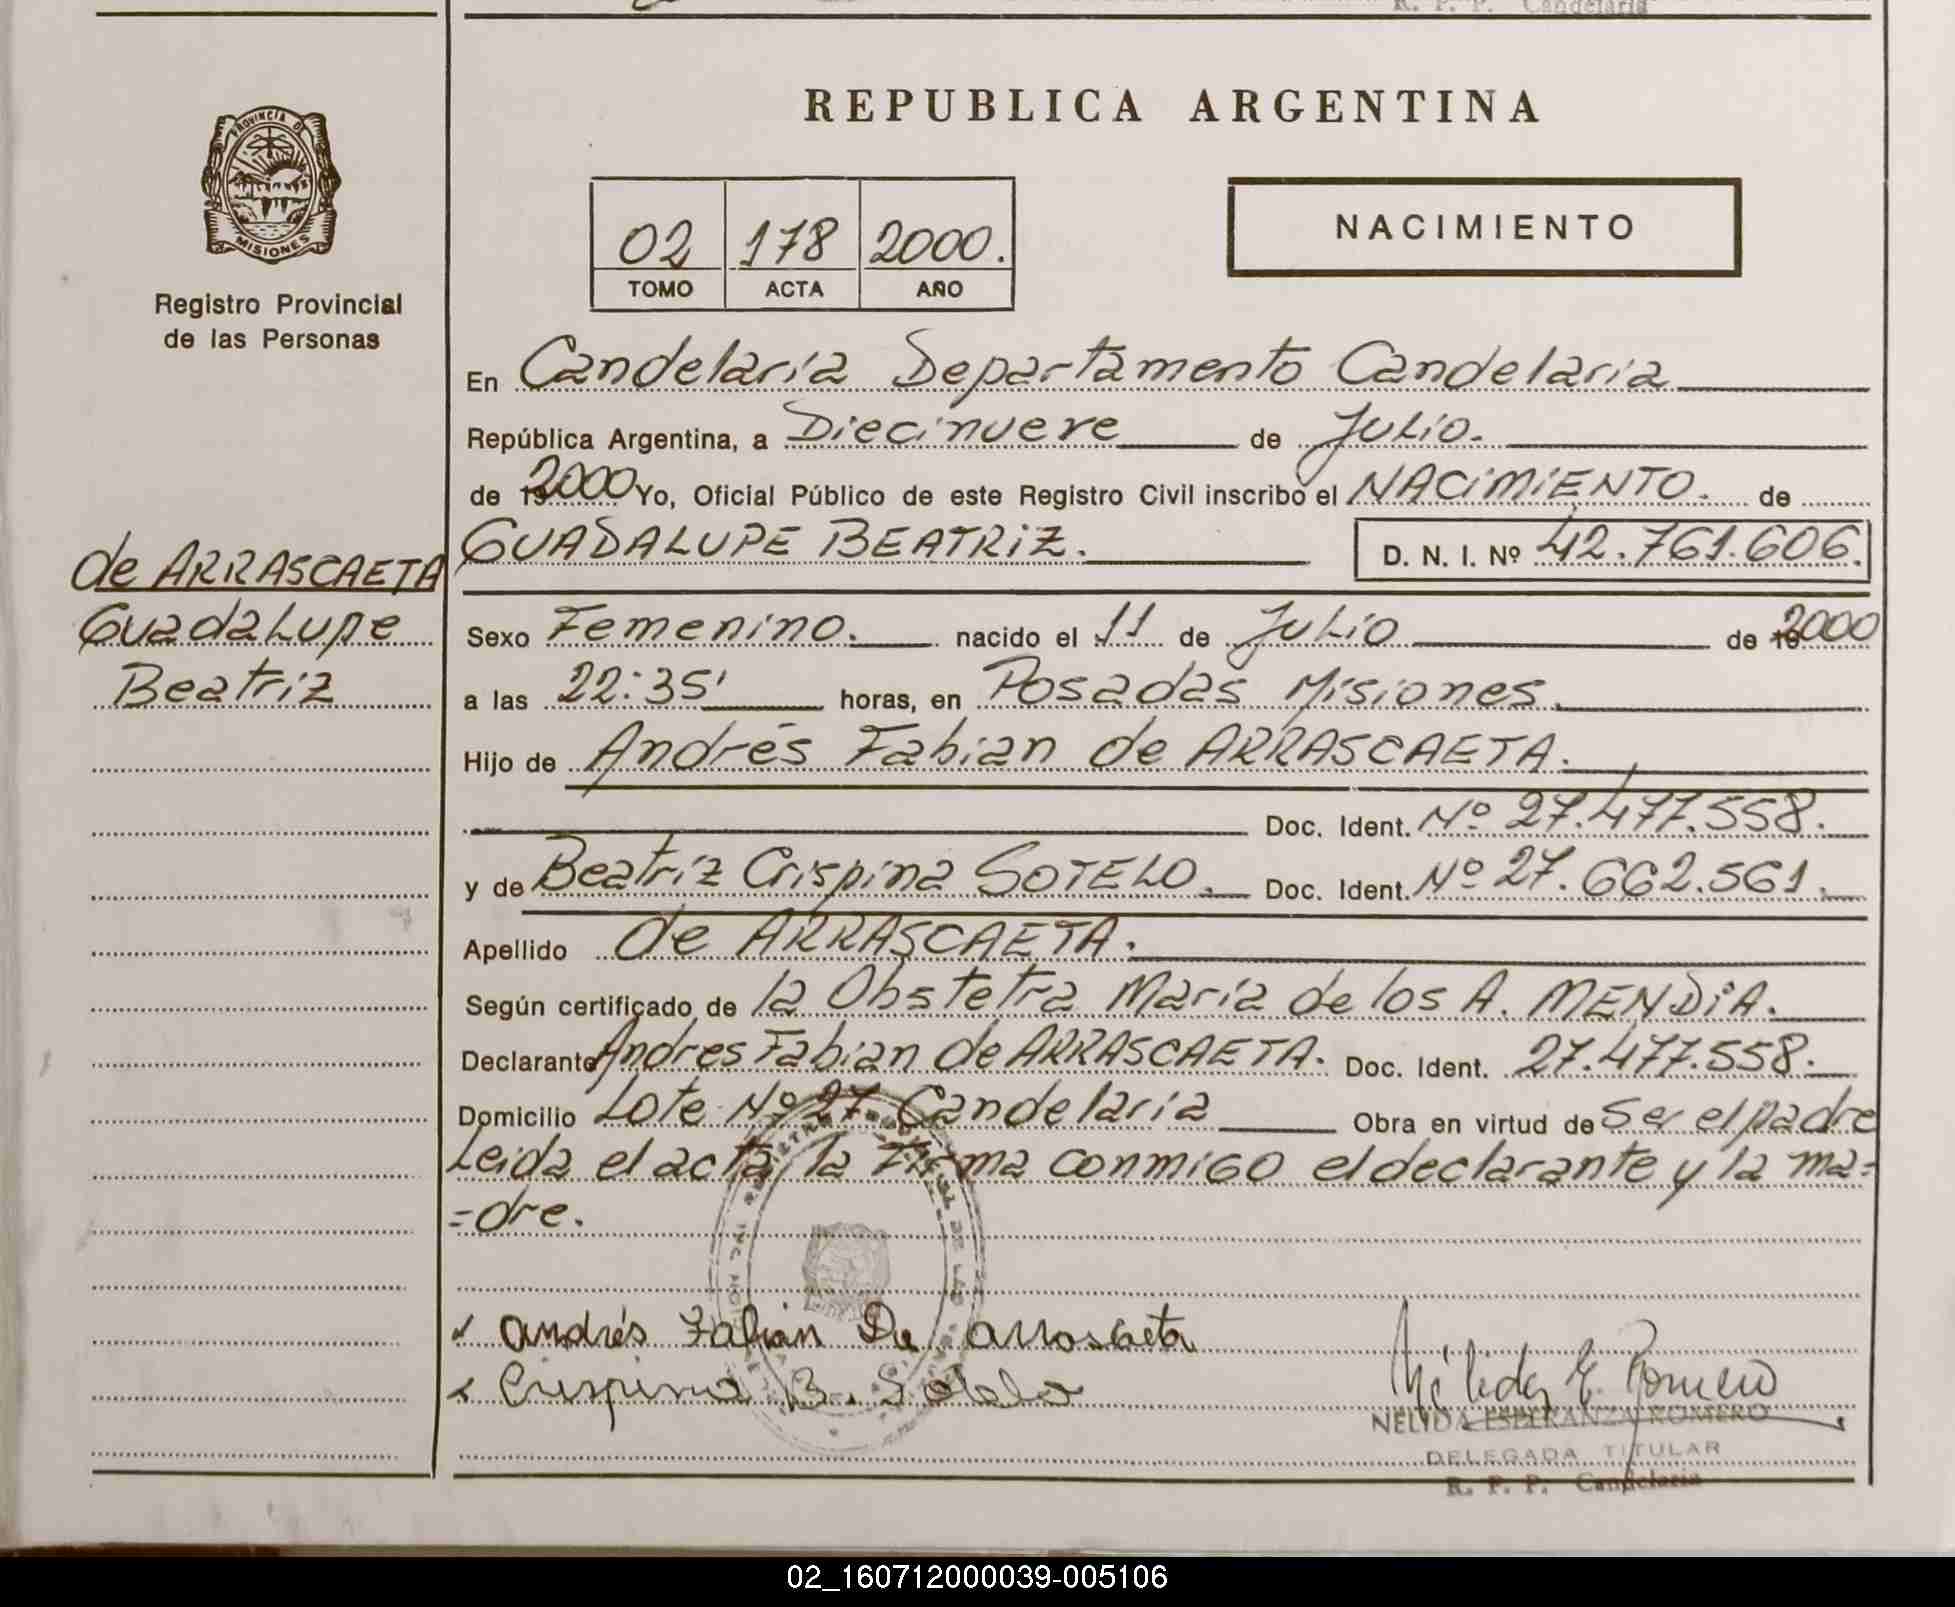 R. P. P. Candelaria
PROVINCIA DE
MISIONES
Registro Provincial
de las Personas
REPUBLICA ARGENTINA
02 178 2000.
TOMO ACTA AÑO
NACIMIENTO
En Candelaria Departamento Candelaria
República Argentina, a Diecinueve de Julio.
de 2000 Yo, Oficial Público de este Registro Civil inscribo el NACIMIENTO. de
GUADALUPE BEATRIZ. D. N. I. Nº 42.761.606.
de ARRASCAETA
Guadalupe
Beatriz
Sexo Femenino. nacido el 11 de Julio de 2000
a las 22:35' horas, en Posadas Misiones.
Hijo de Andrés Fabian de ARRASCAETA.
Doc. Ident. Nº 27.477.558.
y de Beatriz Crispina SOTELO. Doc. Ident. Nº 27.662.561.
Apellido de ARRASCAETA.
Según certificado de la Obstetra Maria de los A. MENDIA.
Declarante Andres Fabian de ARRASCAETA. Doc. Ident. 27.477.558.
Domicilio Lote Nº 27 Candelaria Obra en virtud de Ser el padre
Leida el acta, la Firma conmigo el declarante y la ma=
=dre.
Andrés Fabian De Arrascaeta
Crispina B. Sotelo
Nélida E. Romero
NELIDA ESPERANZA ROMERO
DELEGADA TITULAR
R. P. P. Candelaria
02_160712000039-005106